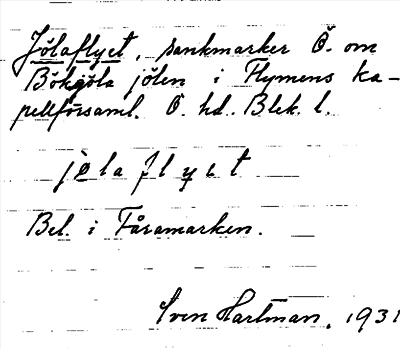 Jölaflyet, sankmarker Ö. om
Bökgöla jölen i Flymens ka-
pellförsaml. Ö. hd. Blek. l.
jølaflyet
Bel. i Fåramarken.
Sven Hartman, 1931